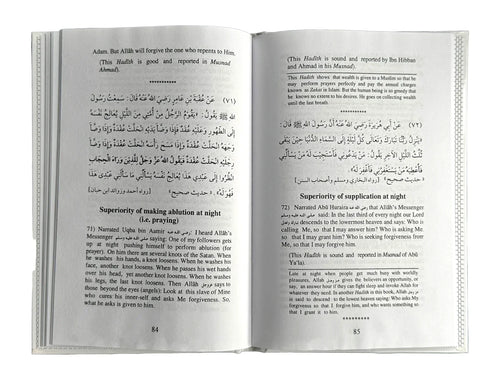 Adam. But Allāh will forgive the one who repents to Him.
(This Hadīth is good and reported in Musnad
Ahmad).
***********
(٧١) عَنْ عُقْبَةَ بْنِ عَامِرٍ رَضِيَ اللهُ عَنْهُ قَالَ: سَمِعْتُ رَسُولَ
اللهِ ﷺ يَقُولُ: «يَقُومُ الرَّجُلُ مِنْ أُمَّتِي مِنَ اللَّيْلِ يُعَالِجُ نَفْسَهُ
إِلَى الطَّهُورِ وَعَلَيْهِ عُقَدٌ فَإِذَا وَضَّأَ يَدَيْهِ انْحَلَّتْ عُقْدَةٌ وَإِذَا وَضَّأَ
وَجْهَهُ انْحَلَّتْ عُقْدَةٌ وَإِذَا مَسَحَ رَأْسَهُ انْحَلَّتْ عُقْدَةٌ وَإِذَا وَضَّأَ
رِجْلَيْهِ انْحَلَّتْ عُقْدَةٌ فَيَقُولُ اللهُ عَزَّ وَجَلَّ لِلَّذِينَ وَرَاءَ الْحِجَابِ
انْظُرُوا إِلَى عَبْدِي هَذَا يُعَالِجُ نَفْسَهُ يَسْأَلُنِي مَا سَأَلَنِي عَبْدِي هَذَا
فَهُوَ لَهُ».
«حديث صحيح» [رواه أحمد وابن حبان]
Superiority of making ablution at night
(i.e, praying)
71) Narrated Uqba bin Aamir رضي الله عنه I heard Allāh's
Messenger صلى الله عليه وسلم saying: One of my followers gets
up at night pushing himself to perform ablution (for
prayer). On him there are several knots of the Satan. When
he washes his hands, a knot loosens. When he washes his
face, another knot loosens. When he passes his wet hands
over his head, yet another knot loosens. When he washes
his legs, the last knot loosens. Then Allāh عز وجل says to
those beyond the eyes (angels): Look at this slave of Mine
who cures his inner-self and asks Me forgiveness. So.
what he asks is given to him.
84
(This Hadīth is sound and reported by Ibn Hibban
and Ahmad in his Musnad).
This Hadīth shows that wealth is given to a Muslim so that he
may perform prayers perfectly and pay the annual charges
known as Zakat in Islam. But the human being is so greedy that
he knows no extent to his desires. He goes on collecting wealth
until the last breath.
***********
(٧٢) عَنْ أَبِي هُرَيْرَةَ رَضِيَ اللهُ عَنْهُ أَنَّ رَسُولَ اللهِ ﷺ قَالَ:
«يَنْزِلُ رَبُّنَا تَبَارَكَ وَتَعَالَى كُلَّ لَيْلَةٍ إِلَى السَّمَاءِ الدُّنْيَا حِينَ يَبْقَى
ثُلُثُ اللَّيْلِ الآخِرُ يَقُولُ: مَنْ يَدْعُونِي فَأَسْتَجِيبَ لَهُ مَنْ يَسْأَلُنِي
فَأُعْطِيَهُ مَنْ يَسْتَغْفِرُنِي فَأَغْفِرَ لَهُ».
«حديث صحيح» [رواه البخاري ومسلم وأصحاب السنن]
Superiority of supplication at night
72) Narrated Abū Huraira رضي الله عنه that Allāh's Messenger
صلى الله عليه وسلم said: In the last third of every night our Lord
descends to the lowermost heaven and says: Who is calling
Me, so that I may answer him? Who is asking Me, so
that I may grant him? Who is seeking forgiveness from
Me, so that I may forgive him.
(This Hadīth is sound and reported in Musnad of Abū
Ya'la).
Late at night when people get much busy with worldly
pleasures, Allāh عز وجل gives the believers an opportunity, or
say, an answer hour if they can fight sleep and invoke Allāh for
whatever they need. In another Hadīth in this book, Allāh عز وجل
is said to descend to the lowest heaven saying: Who asks My
forgiveness so that I forgive him, and who wants something so
that I grant it to him.
*********
85